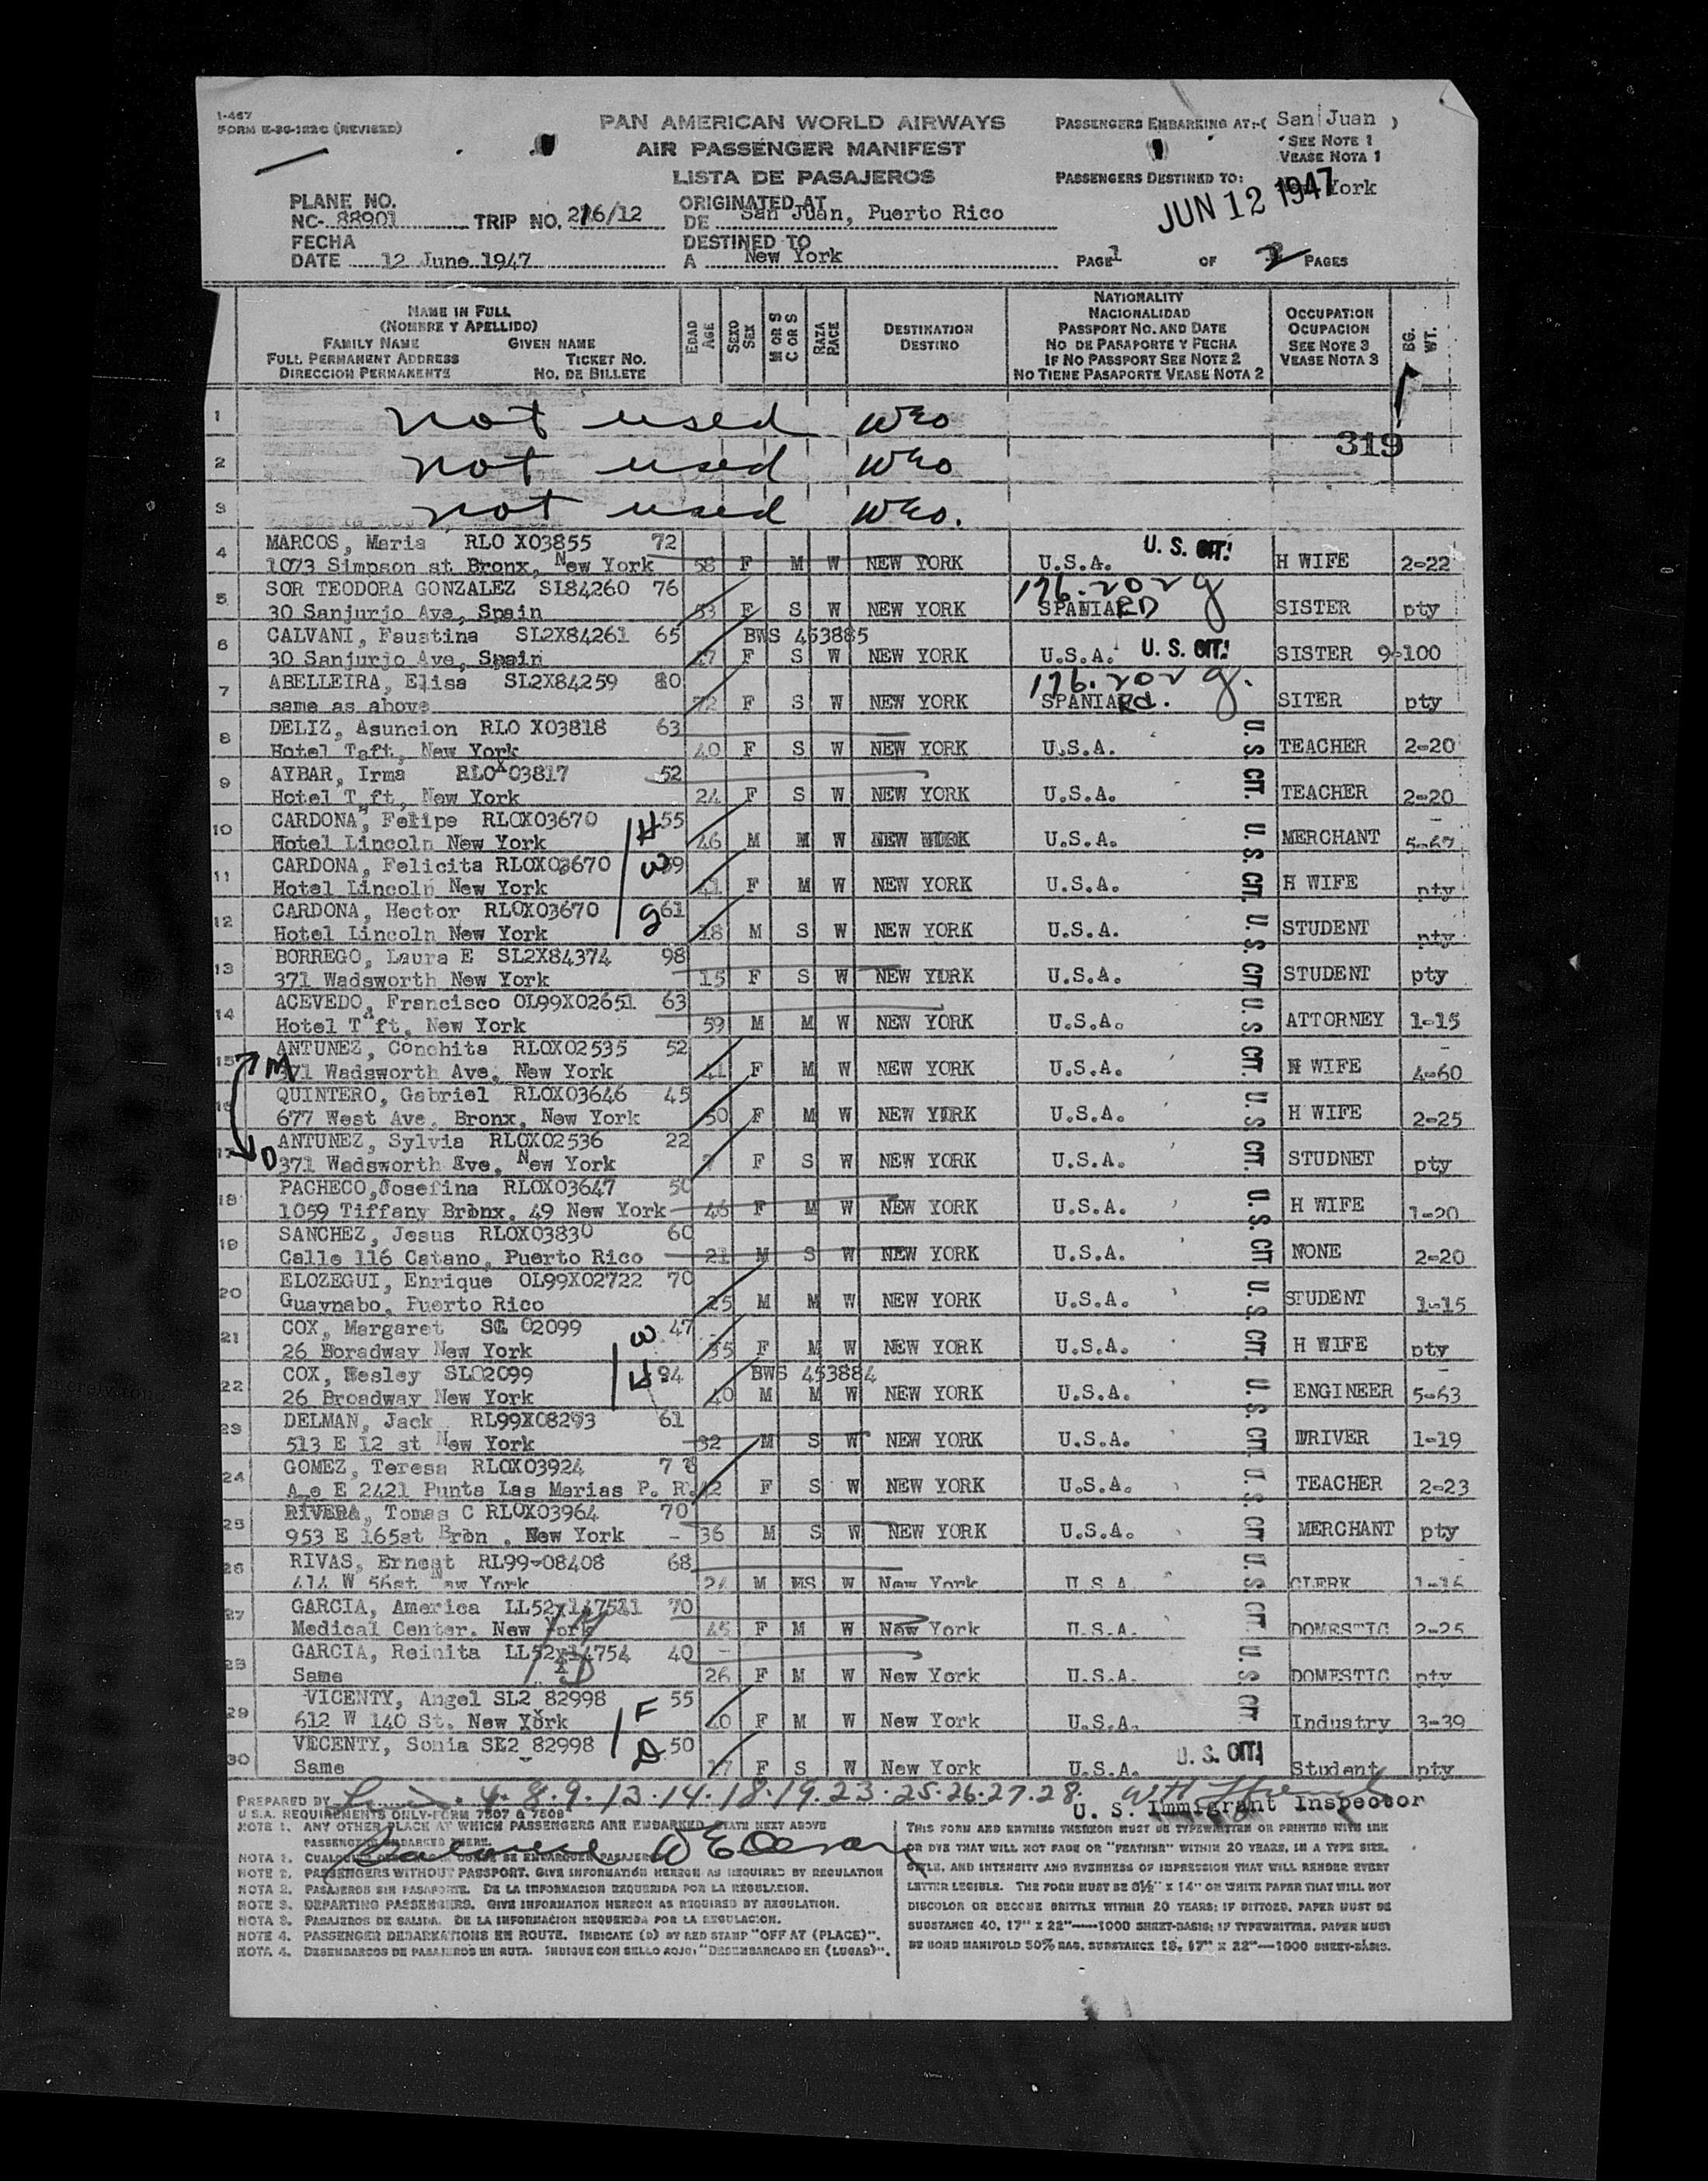 I-467
FORM E-36-122C (REVISED)
PAN AMERICAN WORLD AIRWAYS
AIR PASSENGER MANIFEST
LISTA DE PASAJEROS
PASSENGERS EMBARKING AT:-( San Juan )
SEE NOTE 1
VEASE NOTA 1
PASSENGERS DESTINED TO: York
JUN 12 1947
PLANE NO.
NC- 88901 TRIP NO. 216/12
ORIGINATED AT
DE San Juan, Puerto Rico
FECHA
DATE 12 June 1947
DESTINED TO
A New York
PAGE 1 OF 2 PAGES
NAME IN FULL
(NOMBRE Y APELLIDO)
FAMILY NAME GIVEN NAME
FULL PERMANENT ADDRESS TICKET NO.
DIRECCION PERMANENTE NO. DE BILLETE
EDAD AGE
SEXO SEX
M OR S C OR S
RAZA RACE
DESTINATION
DESTINO
NATIONALITY
NACIONALIDAD
PASSPORT NO. AND DATE
NO DE PASAPORTE Y FECHA
IF NO PASSPORT SEE NOTE 2
NO TIENE PASAPORTE VEASE NOTA 2
OCCUPATION
OCUPACION
SEE NOTE 3
VEASE NOTA 3
BG. WT.
1 not used WEO
319
2 not used WEO
3 not used WEO.
4 MARCOS, Maria RLO X03855 72 U. S. CIT.
1073 Simpson st Bronx, New York 58 F M W NEW YORK U.S.A. H WIFE 2-22
5 SOR TEODORA GONZALEZ SL84260 76 176.202 g
30 Sanjurjo Ave, Spain 53 F S W NEW YORK SPANIARD SISTER pty
6 CALVANI, Faustina SL2X84261 65 BWS 453885
30 Sanjurjo Ave, Spain 47 F S W NEW YORK U.S.A. U. S. CIT. SISTER 9-100
7 ABELLEIRA, Elisa SL2X84259 80 176.202 g.
same as above 72 F S W NEW YORK SPANIARd. SITER pty
8 DELIZ, Asuncion RLO X03818 63
Hotel Taft, New York 40 F S W NEW YORK U.S.A. U. S CIT. TEACHER 2-20
9 AYBAR, Irma RLOX03817 52
Hotel Taft, New York 24 F S W NEW YORK U.S.A. TEACHER 2-20
10 CARDONA, Felipe RLOX03670 H 55
Hotel Lincoln New York 46 M M W NEW YORK U.S.A. U. S. CIT. MERCHANT 5-67
11 CARDONA, Felicita RLOX03670 W 39
Hotel Lincoln New York 41 F M W NEW YORK U.S.A. H WIFE pty
12 CARDONA, Hector RLOX03670 S 61
Hotel Lincoln New York 18 M S W NEW YORK U.S.A. U. S. CIT STUDENT pty
13 BORREGO, Laura E SL2X84374 98
371 Wadsworth New York 15 F S W NEW YORK U.S.A. STUDENT pty
14 ACEVEDO, Francisco OL99X02651 63
Hotel Taft, New York 59 M M W NEW YORK U.S.A. U. S CIT. ATTORNEY 1-15
15 M ANTUNEZ, Conchita RLOX02535 52
371 Wadsworth Ave, New York 41 F M W NEW YORK U.S.A. H WIFE 4-60
16 QUINTERO, Gabriel RLOX03646 45
677 West Ave. Bronx, New York 50 F M W NEW YORK U.S.A. U. S CIT. H WIFE 2-25
17 D ANTUNEZ, Sylvia RLOX02536 22
371 Wadsworth Eve, New York 7 F S W NEW YORK U.S.A. STUDNET pty
18 PACHECO, Josefina RLOX03647 50
1059 Tiffany Brbnx, 49 New York 46 F M W NEW YORK U.S.A. U. S. CIT H WIFE 1-20
19 SANCHEZ, Jesus RLOX03830 60
Calle 116 Catano, Puerto Rico 21 M S W NEW YORK U.S.A. NONE 2-20
20 ELOZEGUI, Enrique OL99X02722 70
Guaynabo, Puerto Rico 25 M M W NEW YORK U.S.A. U. S. CIT. STUDENT 1-15
21 COX, Margaret SL 02099 W 47
26 Boradway New York 35 F M W NEW YORK U.S.A. H WIFE pty
22 COX, Wesley SL02099 H 94 BWS 453884
26 Broadway New York 40 M M W NEW YORK U.S.A. U. S. CIT. ENGINEER 5-63
23 DELMAN, Jack RL99X08293 61
513 E 12 st New York 32 M S W NEW YORK U.S.A. DRIVER 1-19
24 GOMEZ, Teresa RLOX03924 78
Ave E 2421 Punta Las Marias P. R. 42 F S W NEW YORK U.S.A. U. S. CIT TEACHER 2-23
25 RIVERA, Tomas C RLOX03964 70
953 E 165st Bron . New York - 36 M S W NEW YORK U.S.A. MERCHANT pty
26 RIVAS, Ernest RL99-08408 68
414 W 56st New York 24 M MS W New York U.S.A. U. S CIT. CLERK 1-16
27 GARCIA, America LL52x147511 70
Medical Center. New York M 45 F M W New York U.S.A. DOMESTIC 2-25
28 GARCIA, Reinita LL52x14754 40
Same D 26 F M W New York U.S.A. U. S CIT DOMESTIC pty
29 VICENTY, Angel SL2 82998 F 55
612 W 140 St. New York 40 F M W New York U.S.A. Industry 3-39
30 VECENTY, Sonia SL2 82998 D 50
Same 17 F S W New York U.S.A. U. S. CIT. Student pty
PREPARED BY Lines 4.8.9.13.14.18.19.23.25.26.27.28.
U. S. Immigrant Inspector
U.S.A. REQUIREMENTS ONLY-FORM 7507 & 7509
NOTE 1. ANY OTHER PLACE AT WHICH PASSENGERS ARE EMBARKED STATE NEXT ABOVE
PASSENGERS EMBARKED HERE.
Balance W E Olson
NOTA 1.
NOTE 2. PASSENGERS WITHOUT PASSPORT. GIVE INFORMATION HEREON AS REQUIRED BY REGULATION
NOTA 2. PASAJEROS SIN PASAPORTE. DE LA INFORMACION REQUERIDA POR LA REGULACION.
NOTE 3. DEPARTING PASSENGERS. GIVE INFORMATION HEREON AS REQUIRED BY REGULATION.
NOTA 3. PASAJEROS DE SALIDA. DE LA INFORMACION REQUERIDA POR LA REGULACION.
NOTE 4. PASSENGER DEBARKATIONS EN ROUTE. INDICATE (D) BY RED STAMP "OFF AT (PLACE)".
NOTA 4. DESEMBARCOS DE PASAJEROS EN RUTA. INDIQUE CON SELLO ROJO: "DESEMBARCADO EN (LUGAR)".
THIS FORM AND ENTRIES THEREON MUST BE TYPEWRITTEN OR PRINTED WITH INK
OR DYE THAT WILL NOT FADE OR "FEATHER" WITHIN 20 YEARS, IN A TYPE SIZE,
STYLE, AND INTENSITY AND EVENNESS OF IMPRESSION THAT WILL RENDER EVERY
LETTER LEGIBLE. THE FORM MUST BE 8½" X 14" ON WHITE PAPER THAT WILL NOT
DISCOLOR OR BECOME BRITTLE WITHIN 20 YEARS; IF DITTOED, PAPER MUST BE
SUBSTANCE 40, 17" X 22"—1000 SHEET-BASIS; IF TYPEWRITTEN, PAPER MUST
BE BOND MANIFOLD 50% RAG, SUBSTANCE 18, 17" X 22"—1000 SHEET-BASIS.